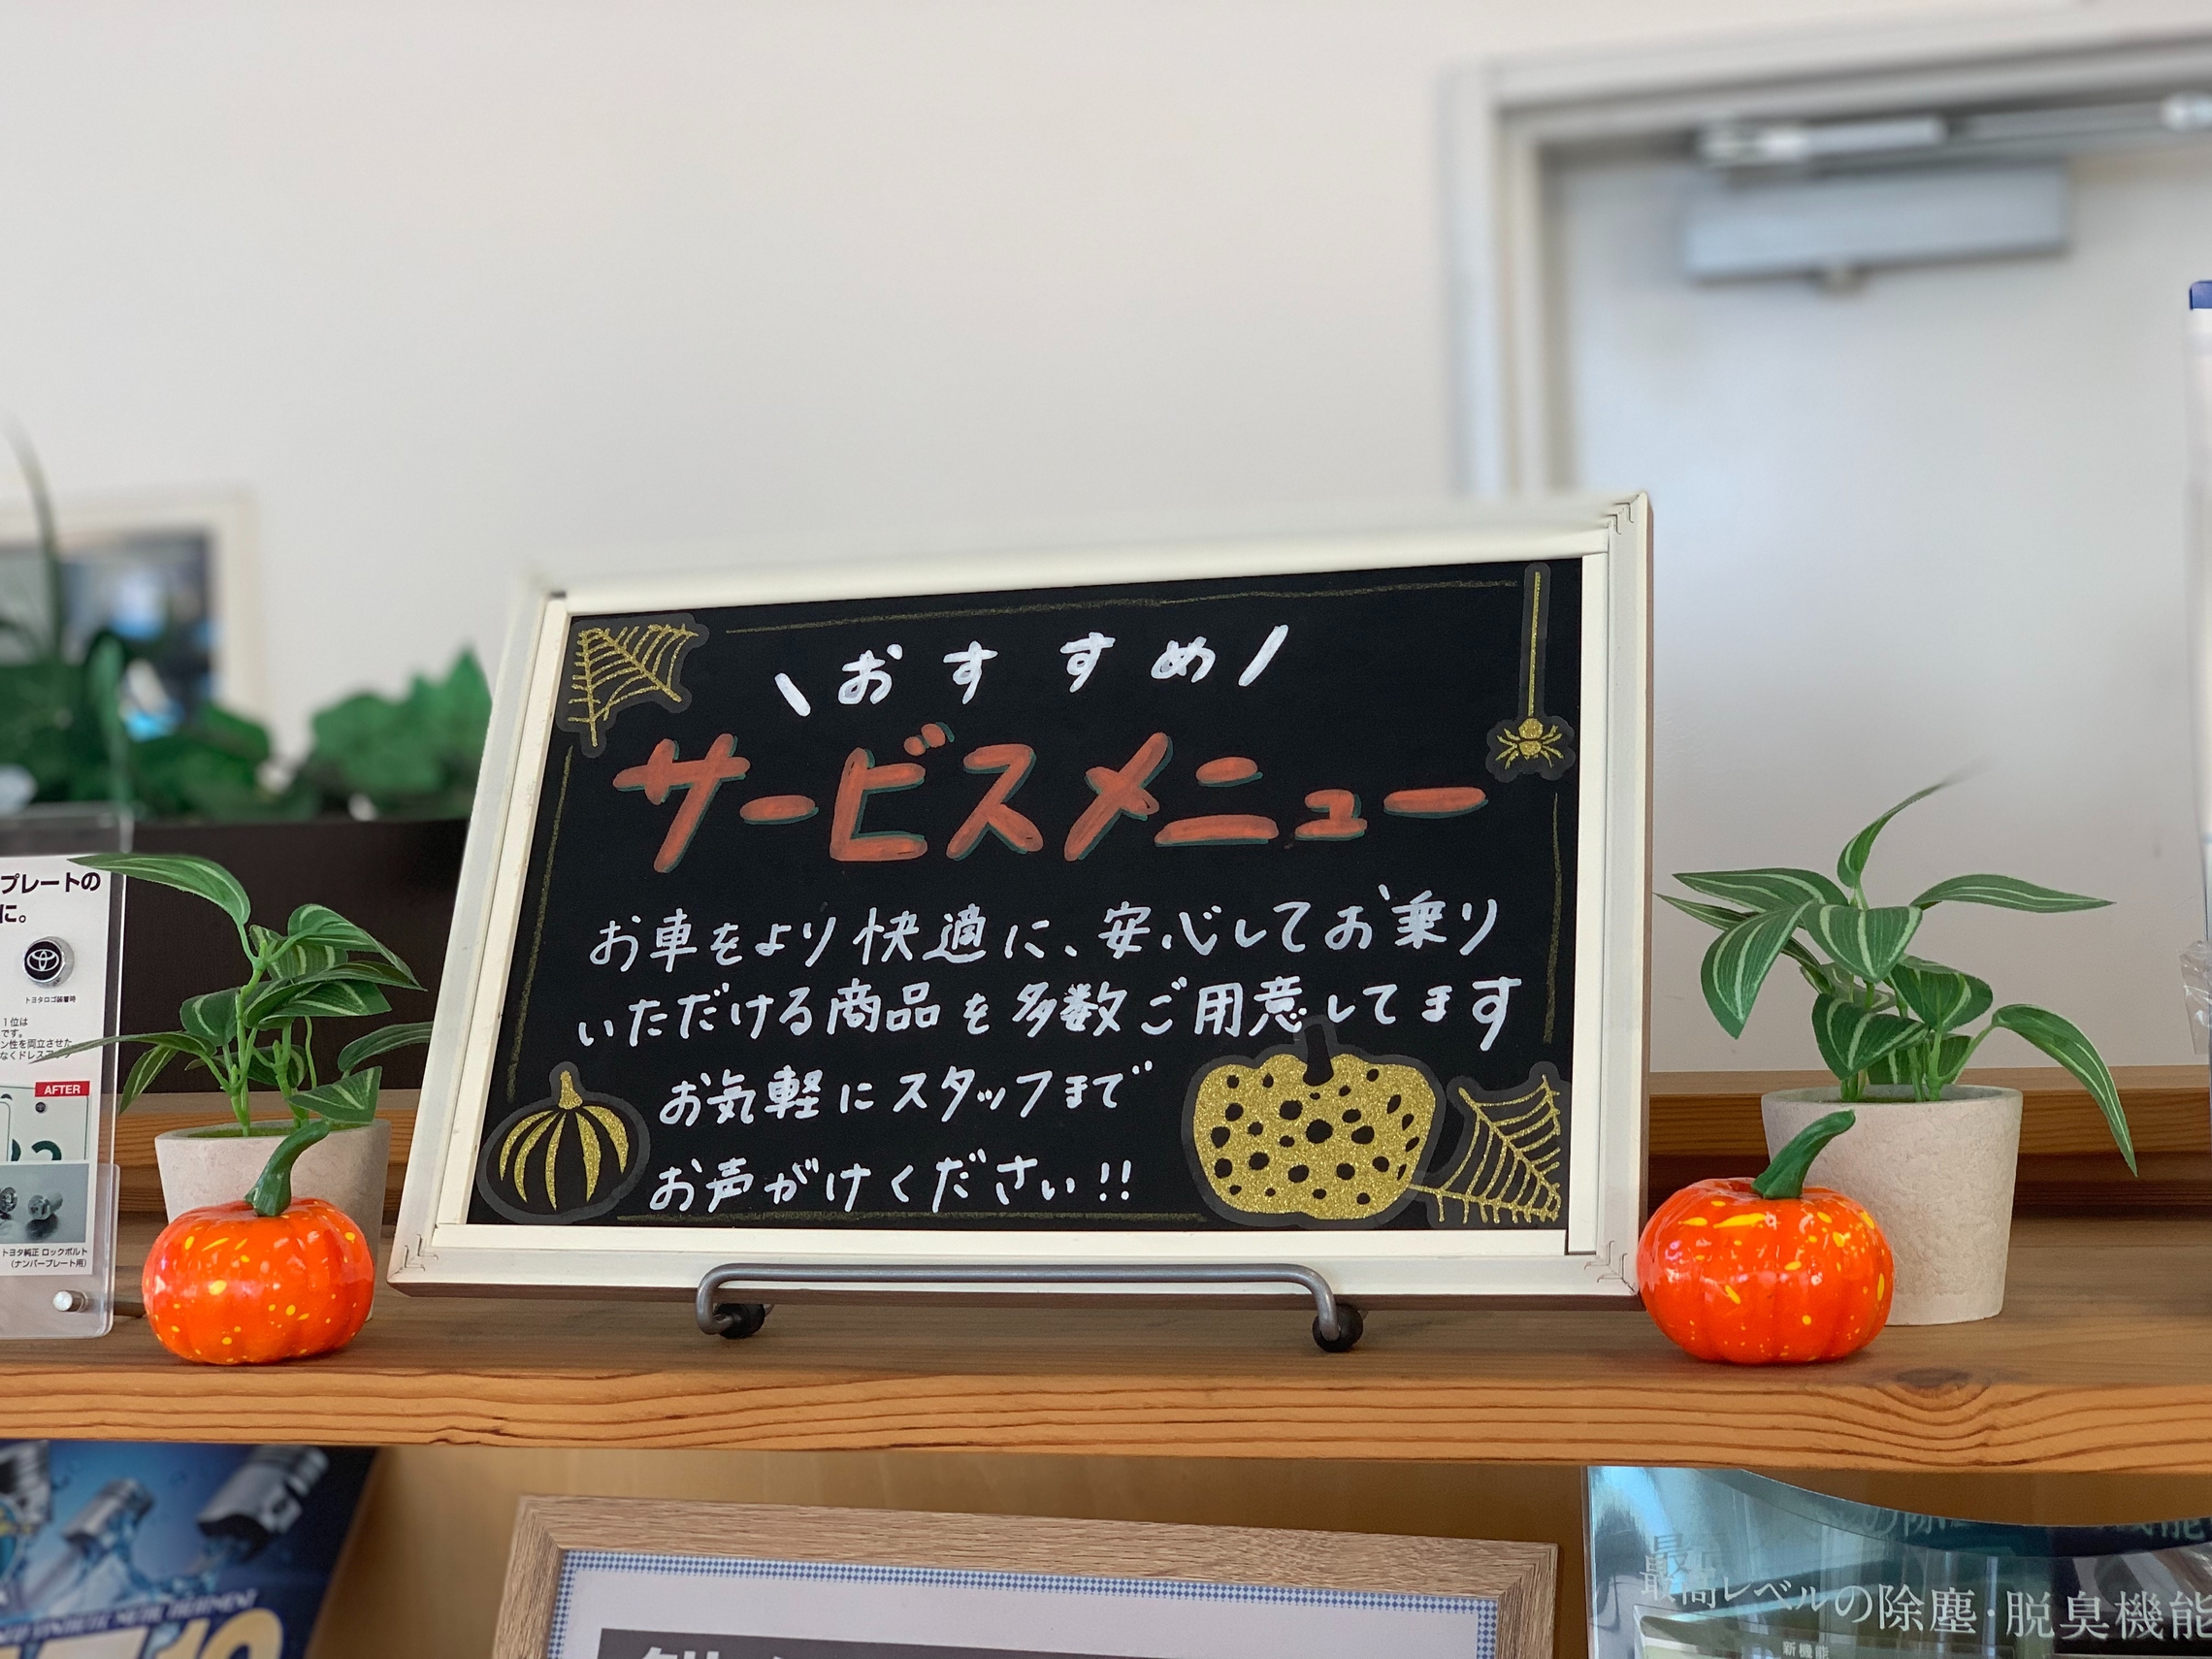 \おすすめ/
サービスメニュー
お車をより快適に、安心してお乗り
いただける商品を多数ご用意してます
お気軽にスタッフまで
お声がけください!!
プレートの
に。
トヨタロゴ装着時
1位は
です。
ン性を両立させた
なくドレスアップ
AFTER
トヨタ純正 ロックボルト
(ナンバープレート用)
最高レベルの除塵・脱臭機能
新機能